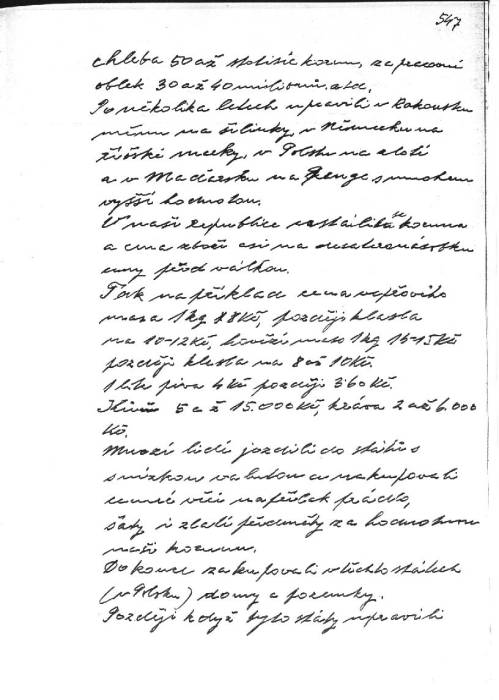 547
chleba 50 až stotisíc korun, za pracovní
oblek 30 až 40 milionů. atd.
Po několika letech upravili v Rakousku
měnu na šilinky, v Německu na
říšské marky, v Polsku na zloté
a v Maďarsku na Pengo s mnohem
vyšší hodnotou.
V naší republice se stabilisa koruna
a cena zboží asi na desateronásobku
ceny před válkou.
Tak na příklad cena vepřového
masa 1 kg 18 Kč, později klesla
na 10-12 Kč, hovězí maso 1 kg 15-15 Kč
později klesla na 8 až 10 Kč.
1 litr piva 4 Kč později 3'60 Kč.
5 až 15.000 Kč, kráva 2 až 6.000
Kč.
Mnozí lidé jezdili do států s
sníženou valutou a nakupovali
cenné věci na příklad prádlo,
šaty i zlaté předměty za hodnotnou
naši korunu.
Dokonce zakupovali v těchto státech
(v Polsku) domy a pozemky.
Později když tyto státy upravili